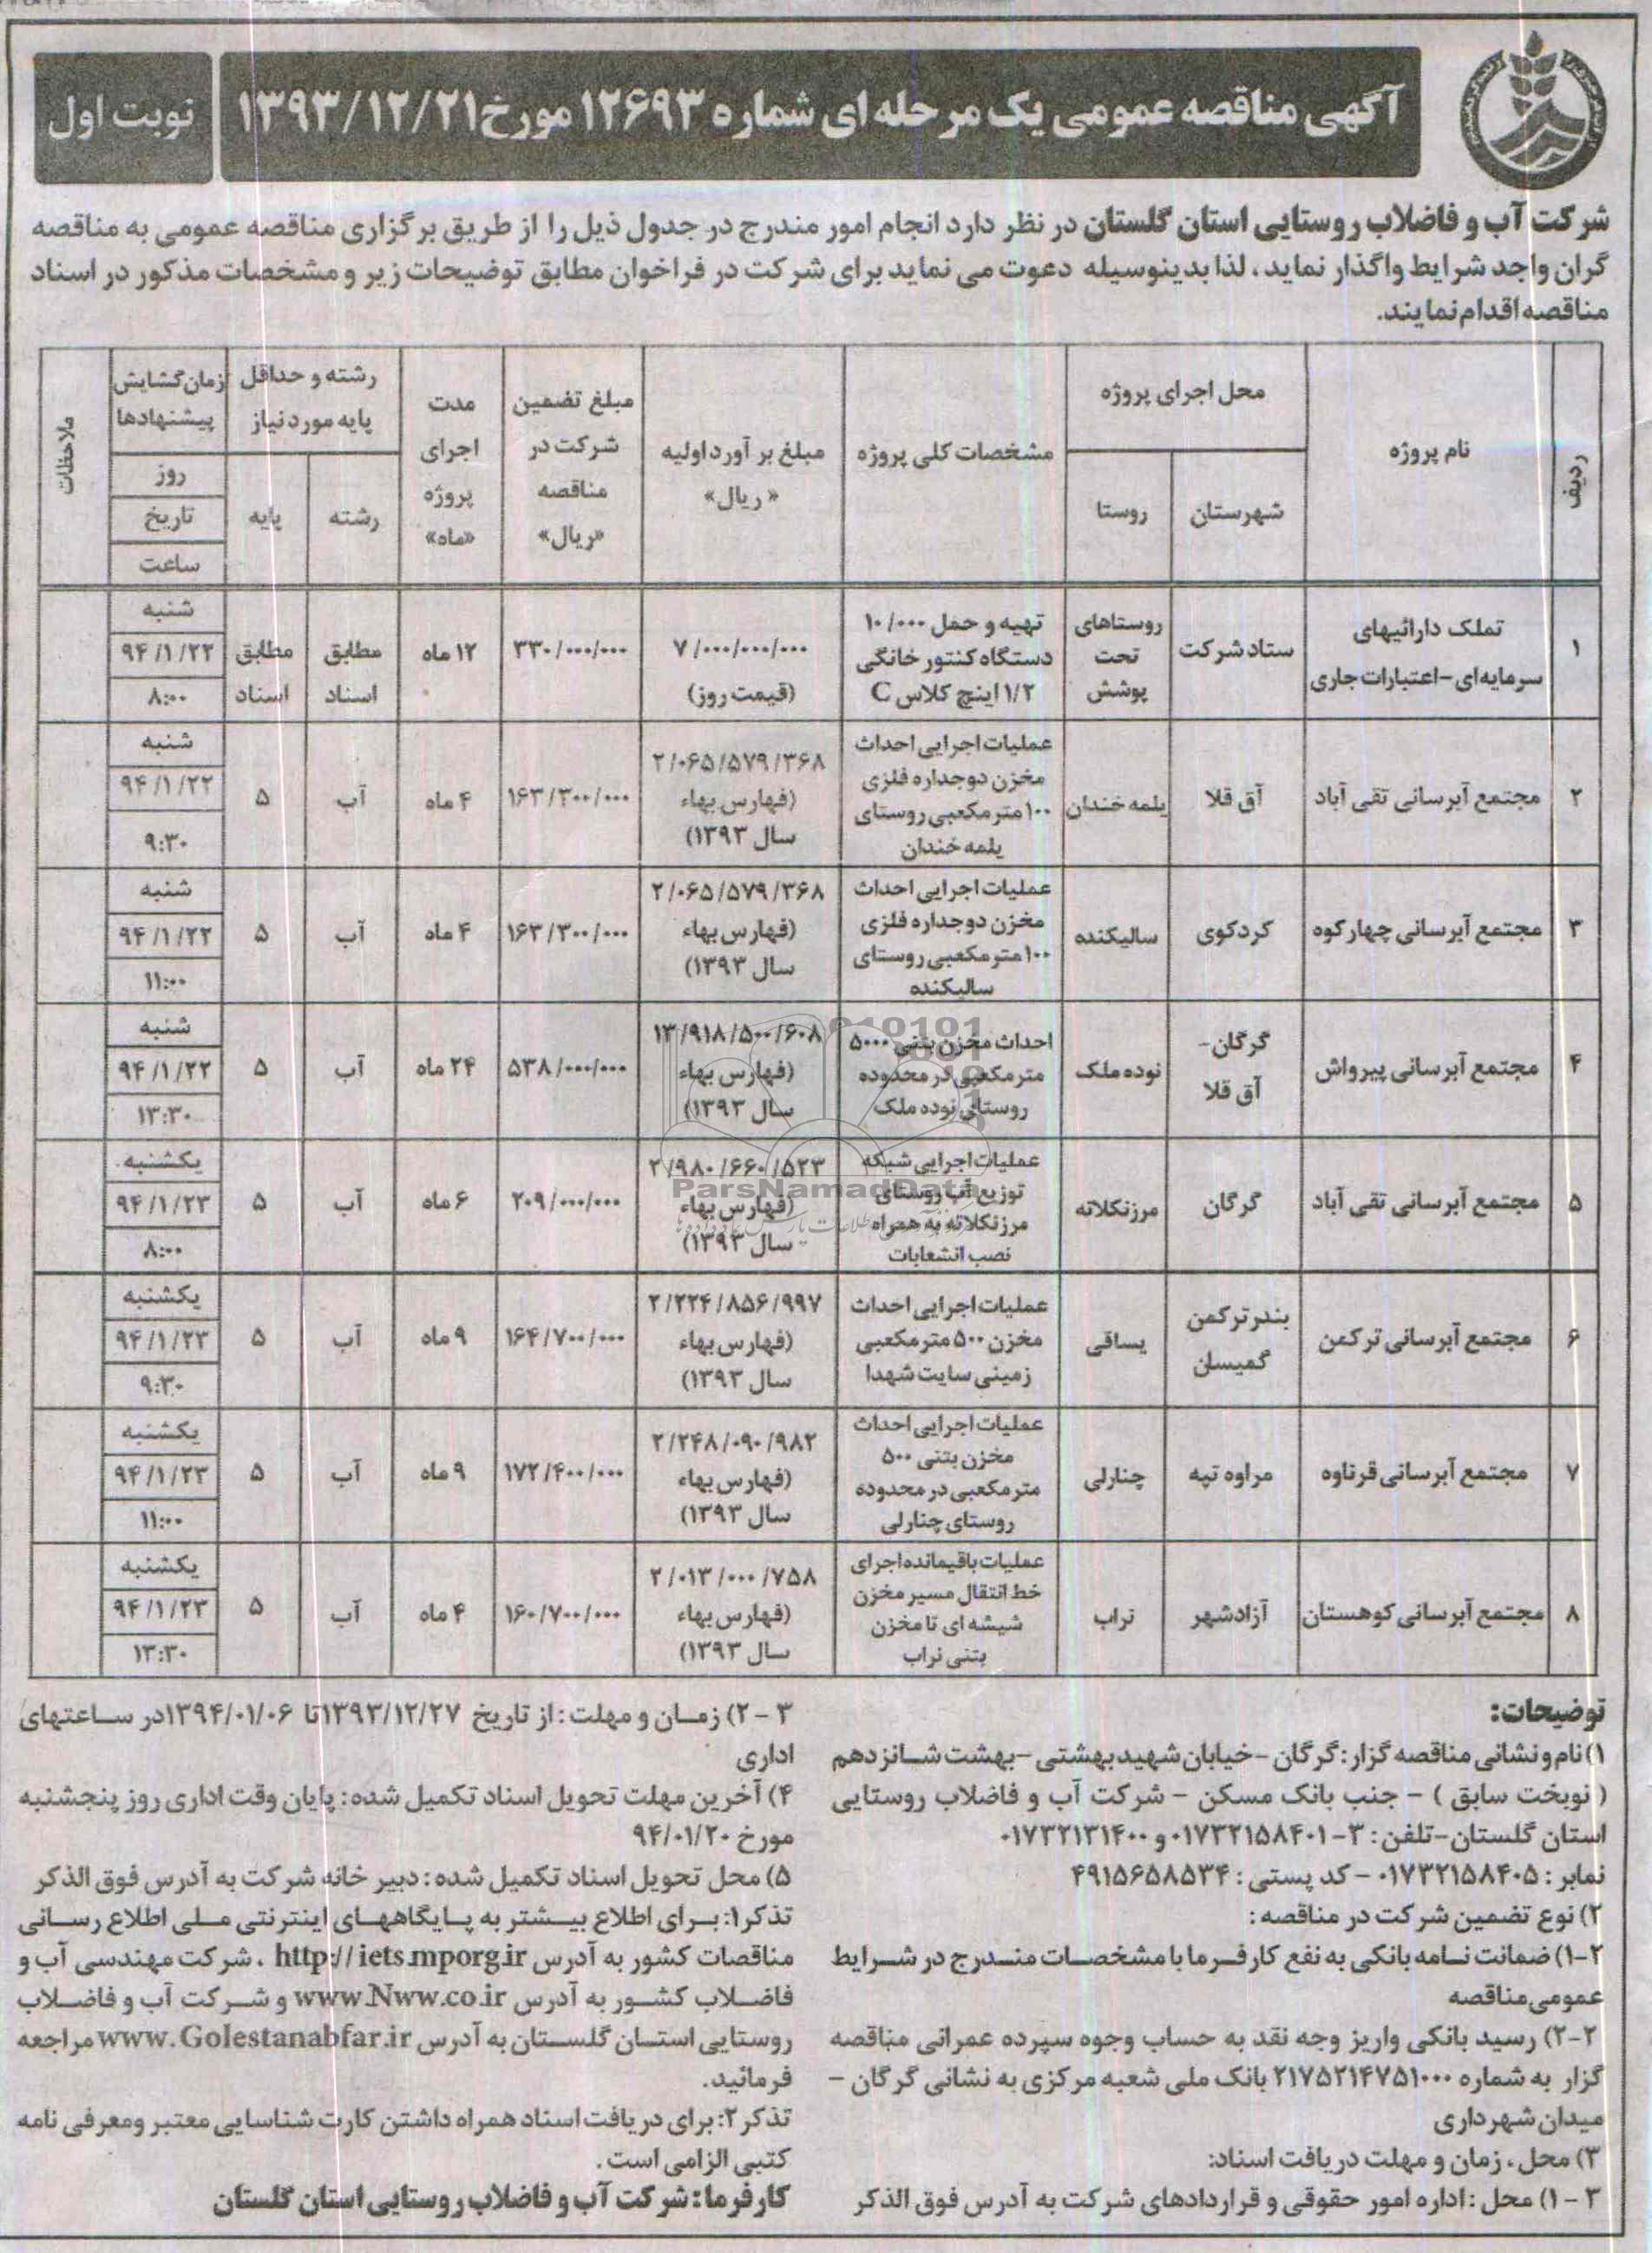 آگهی مناقصه عمومی یک مرحله ای شماره ۱۲۶۹۳ مورخ ۱۳۹۳/۱۲/۲۱
نوبت اول
شرکت آب و فاضلاب روستایی استان گلستان در نظر دارد انجام امور مندرج در جدول ذیل را از طریق برگزاری مناقصه عمومی به مناقصه
گران واجد شرایط واگذار نماید، لذا بدینوسیله دعوت می نماید برای شرکت در فراخوان مطابق توضیحات زیر و مشخصات مذکور در اسناد
مناقصه اقدام نمایند.
ردیف | نام پروژه | محل اجرای پروژه: شهرستان | روستا | مشخصات کلی پروژه | مبلغ برآورد اولیه «ریال» | مبلغ تضمین شرکت در مناقصه «ریال» | مدت اجرای پروژه «ماه» | رشته و حداقل پایه مورد نیاز: رشته | پایه | زمان گشایش پیشنهادها روز تاریخ ساعت | ملاحظات
۱ | تملک دارائیهای سرمایه‌ای-اعتبارات جاری | ستاد شرکت | روستاهای تحت پوشش | تهیه و حمل ۱۰/۰۰۰ دستگاه کنتور خانگی ۱/۲ اینچ کلاس C | ۷/۰۰۰/۰۰۰/۰۰۰ (قیمت روز) | ۳۳۰/۰۰۰/۰۰۰ | ۱۲ ماه | مطابق اسناد | مطابق اسناد | شنبه ۹۴/۱/۲۲ ۸:۰۰
۲ | مجتمع آبرسانی تقی آباد | آق قلا | یلمه خندان | عملیات اجرایی احداث مخزن دوجداره فلزی ۱۰۰ متر مکعبی روستای یلمه خندان | ۲/۰۶۵/۵۷۹/۳۶۸ (فهارس بهاء سال ۱۳۹۳) | ۱۶۳/۳۰۰/۰۰۰ | ۴ ماه | آب | ۵ | شنبه ۹۴/۱/۲۲ ۹:۳۰
۳ | مجتمع آبرسانی چهارکوه | کردکوی | سالیکنده | عملیات اجرایی احداث مخزن دوجداره فلزی ۱۰۰ متر مکعبی روستای سالیکنده | ۲/۰۶۵/۵۷۹/۳۶۸ (فهارس بهاء سال ۱۳۹۳) | ۱۶۳/۳۰۰/۰۰۰ | ۴ ماه | آب | ۵ | شنبه ۹۴/۱/۲۲ ۱۱:۰۰
۴ | مجتمع آبرسانی پیرواش | گرگان- آق قلا | نوده ملک | احداث مخزن بتنی ۵۰۰۰ متر مکعبی در محدوده روستای نوده ملک | ۱۳/۹۱۸/۵۰۰/۶۰۸ (فهارس بهاء سال ۱۳۹۳) | ۵۳۸/۰۰۰/۰۰۰ | ۲۴ ماه | آب | ۵ | شنبه ۹۴/۱/۲۲ ۱۳:۳۰
۵ | مجتمع آبرسانی تقی آباد | گرگان | مرزنکلاته | عملیات اجرایی شبکه توزیع آب روستای مرزنکلاته به همراه نصب انشعابات | ۲/۹۸۰/۶۶۰/۵۲۳ (فهارس بهاء سال ۱۳۹۳) | ۲۰۹/۰۰۰/۰۰۰ | ۶ ماه | آب | ۵ | یکشنبه ۹۴/۱/۲۳ ۸:۰۰
۶ | مجتمع آبرسانی ترکمن | بندر ترکمن گمیسان | یساقی | عملیات اجرایی احداث مخزن ۵۰۰ متر مکعبی زمینی سایت شهدا | ۲/۲۲۴/۸۵۶/۹۹۷ (فهارس بهاء سال ۱۳۹۳) | ۱۶۴/۷۰۰/۰۰۰ | ۹ ماه | آب | ۵ | یکشنبه ۹۴/۱/۲۳ ۹:۳۰
۷ | مجتمع آبرسانی قرناوه | مراوه تپه | چنارلی | عملیات اجرایی احداث مخزن بتنی ۵۰۰ متر مکعبی در محدوده روستای چنارلی | ۲/۲۴۸/۰۹۰/۹۸۲ (فهارس بهاء سال ۱۳۹۳) | ۱۷۲/۴۰۰/۰۰۰ | ۹ ماه | آب | ۵ | یکشنبه ۹۴/۱/۲۳ ۱۱:۰۰
۸ | مجتمع آبرسانی کوهستان | آزادشهر | نراب | عملیات باقیمانده اجرای خط انتقال مسیر مخزن شیشه ای تا مخزن بتنی نراب | ۲/۰۱۳/۰۰۰/۷۵۸ (فهارس بهاء سال ۱۳۹۳) | ۱۶۰/۷۰۰/۰۰۰ | ۴ ماه | آب | ۵ | یکشنبه ۹۴/۱/۲۳ ۱۳:۳۰
ParsNamadData
توضیحات:
۱) نام و نشانی مناقصه گزار: گرگان - خیابان شهید بهشتی - بهشت شانزدهم
(نوبخت سابق) - جنب بانک مسکن - شرکت آب و فاضلاب روستایی
استان گلستان-تلفن: ۳-۰۱۷۳۲۱۵۸۴۰۱ و ۰۱۷۳۲۱۳۱۴۰۰
نمابر: ۰۱۷۳۲۱۵۸۴۰۵ - کد پستی: ۴۹۱۵۶۵۸۵۳۴
۲) نوع تضمین شرکت در مناقصه:
۱-۲) ضمانت نامه بانکی به نفع کارفرما با مشخصات مندرج در شرایط
عمومی مناقصه
۲-۲) رسید بانکی واریز وجه نقد به حساب وجوه سپرده عمرانی مناقصه
گزار به شماره ۲۱۷۵۲۱۴۷۵۱۰۰۰ بانک ملی شعبه مرکزی به نشانی گرگان -
میدان شهرداری
۳) محل، زمان و مهلت دریافت اسناد:
۱-۳) محل: اداره امور حقوقی و قراردادهای شرکت به آدرس فوق الذکر
۲-۳) زمان و مهلت: از تاریخ ۱۳۹۳/۱۲/۲۷ تا ۱۳۹۴/۰۱/۰۶ در ساعتهای
اداری
۴) آخرین مهلت تحویل اسناد تکمیل شده: پایان وقت اداری روز پنجشنبه
مورخ ۹۴/۰۱/۲۰
۵) محل تحویل اسناد تکمیل شده: دبیر خانه شرکت به آدرس فوق الذکر
تذکر۱: برای اطلاع بیشتر به پایگاههای اینترنتی ملی اطلاع رسانی
مناقصات کشور به آدرس http://iets.mporg.ir ، شرکت مهندسی آب و
فاضلاب کشور به آدرس www.Nww.co.ir و شرکت آب و فاضلاب
روستایی استان گلستان به آدرس www.Golestanabfar.ir مراجعه
فرمائید.
تذکر۲: برای دریافت اسناد همراه داشتن کارت شناسایی معتبر ومعرفی نامه
کتبی الزامی است.
کارفرما: شرکت آب و فاضلاب روستایی استان گلستان